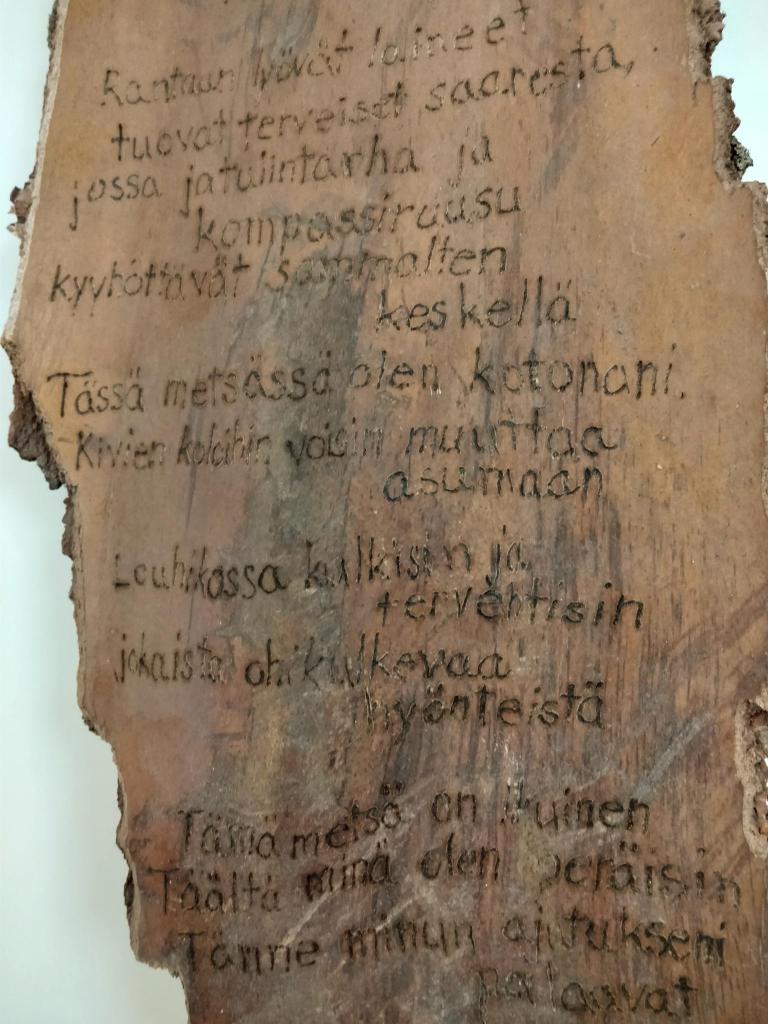 Rantaan lyövät laineet
tuovat terveiset saaresta,
jossa jatulintarha ja
kompassiruusu
kyyhöttävät sammalten
keskellä
Tässä metsässä olen kotonani.
Kivien koloihin voisin muuttaa
asumaan
Louhikossa kulkisin ja
tervehtisin
jokaista ohikulkevaa
hyönteistä
Tämä metsä on ikuinen
Täältä minä olen peräisin
Tänne minun ajatukseni
palaavat